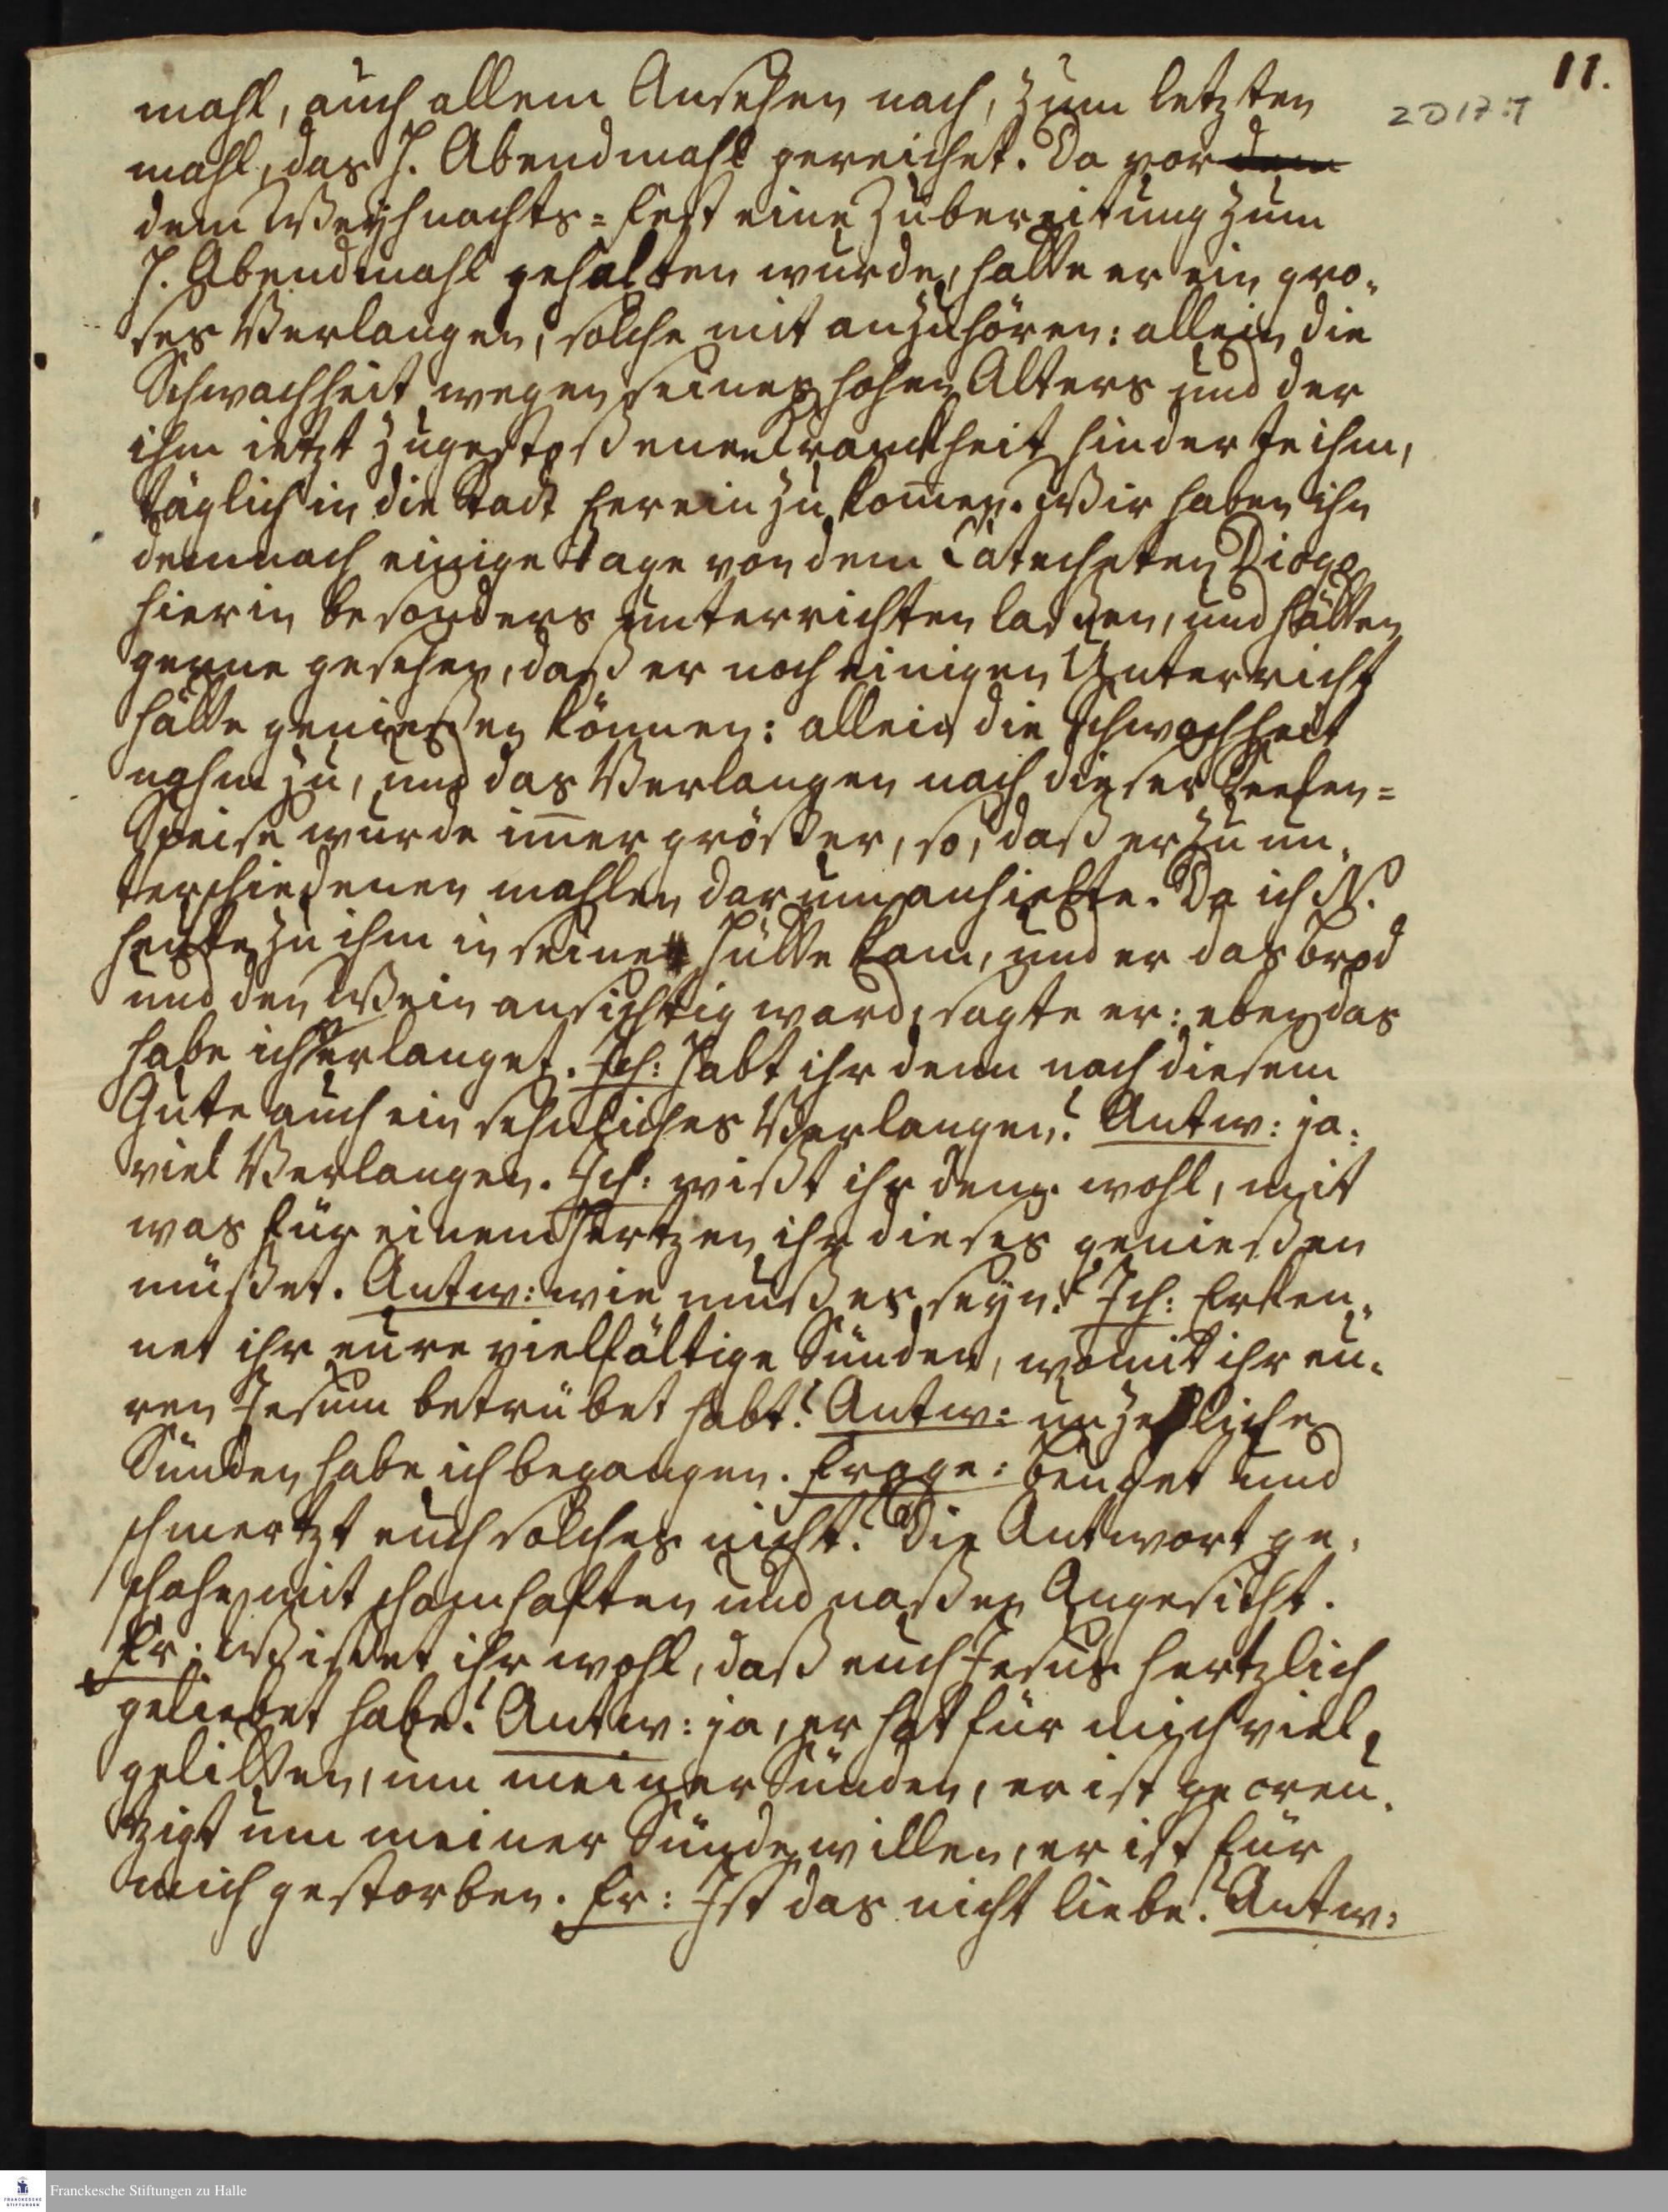 11.
2 D 17:7
mahl, auch allem Ansehen nach, zum letzten
mahl, das H. Abendmahl gereichet. Da vor dem
dem Weyhnachts=Fest eine Zubereitung zum
H. Abendmahl gehalten wurde, hatte er ein gro-
ses Verlangen, solche mit anzuhören: allein die
Schwachheit wegen seines hohen Alters und der
ihm ietzt zugestoßenen Kranckheit hinderte ihm,
täglich in die Stadt herein zu komen. Wir haben ihn
demnach einige Tage von dem Catecheten Diogo
hierin besonders unterrichten laßen, und hätten
gerne gesehen, daß er noch einigen Unterricht
hätte genießen können: allein die Schwachheit
nahm zu, und das Verlangen nach dieser Seelen=
Speise wurde imer größer, so, daß er zu un-
terschiedenen mahlen darum anhielte. Da ich N.
heute zu ihm in seine Hütte kam, und er das Brod
und den Wein ansichtig ward, sagte er: eben das
habe ich verlanget. Ich: Habt ihr denn nach diesem
Gute auch ein sehnliches Verlangen? Antw: ja:
viel Verlangen. Ich: wißt ihr denn wohl, mit
was für einem Hertzen ihr dieses genießen
müßet. Antw: wie muß es seyn? Ich: Erken-
net ihr eure vielfältige Sünden, womit ihr eu-
ren Jesum betrübet habt? Antw: unzehliche
Sünden habe ich begangen. Frage: Beuget und
schmertzt euch solches nicht? Die Antwort ge-
schahe mit schamhaften und naßen Angesicht.
Fr: Wißet ihr wohl, daß euch Jesus hertzlich
geliebet habe? Antw: ja, er hat für mich viel
gelitten, um meiner Sünden, er ist gecreu-
tzigt um meiner Sünde willen, er ist für
mich gestorben. Fr: Ist das nicht liebe? Antw:
Franckesche Stiftungen zu Halle